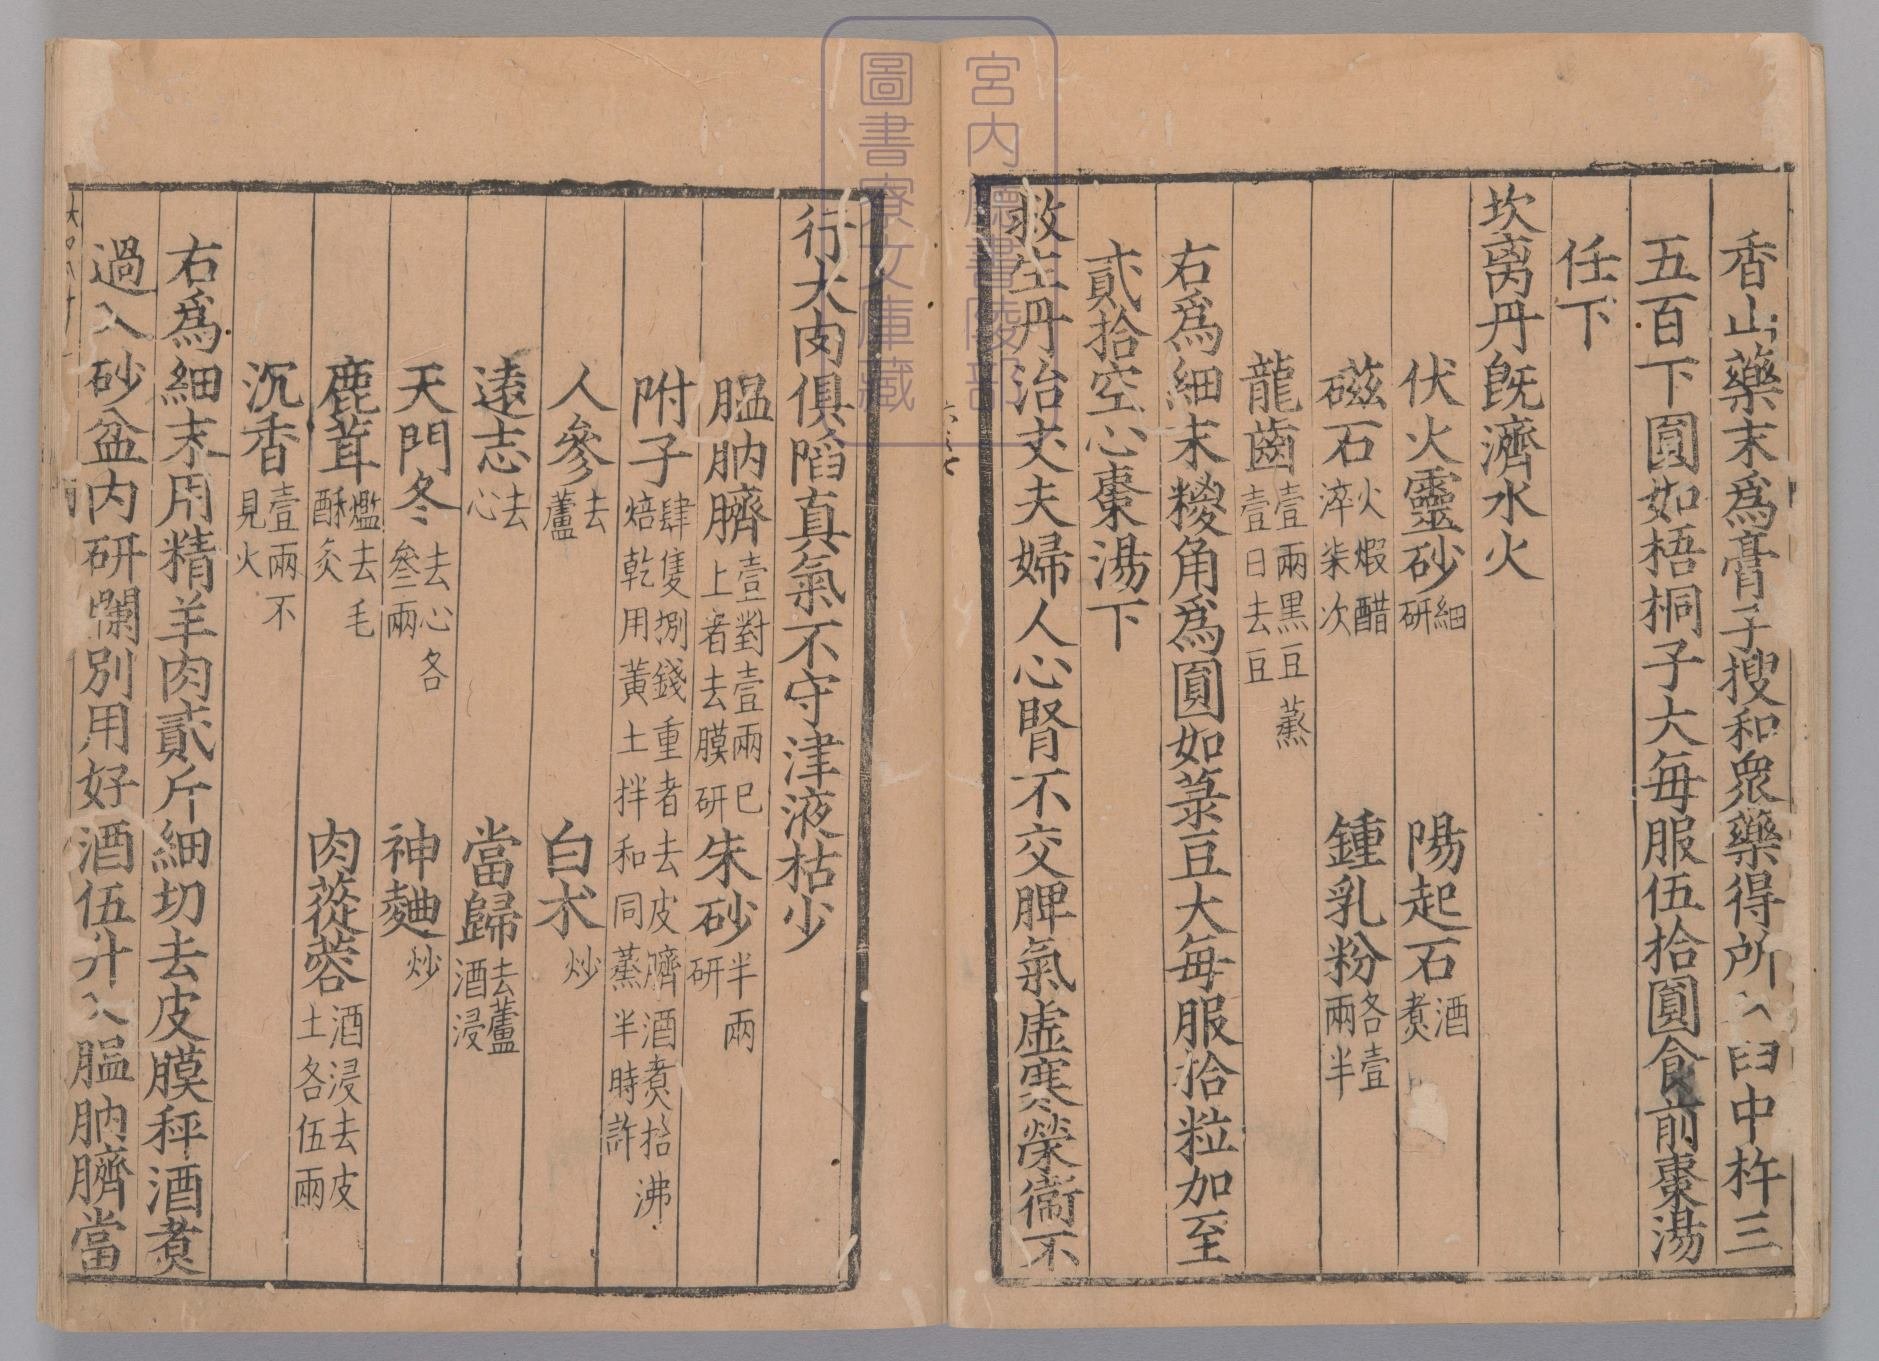 香山藥末爲膏子搜和衆藥得所入臼中杵三
五百下圓如梧桐子大每服伍拾圓食前棗湯
任下
坎离丹旣濟水火
伏火靈砂細研 陽起石酒煮
磁石火煆醋淬柒次 鍾乳粉各壹兩半
龍齒壹兩黑豆蒸壹日去豆
右爲細末糉角爲圓如菉豆大每服拾粒加至
貳拾空心棗湯下
救生丹治丈夫婦人心腎不交脾氣虛寒榮衞不
行大肉俱陷真氣不守津液枯少
膃肭臍壹對壹兩已上者去膜研 朱砂半兩研
附子肆隻捌錢重者去皮臍酒煮拾沸焙乾用黃土拌和同蒸半時許
人參去蘆 白朮炒
遠志去心 當歸去蘆酒浸
天門冬去心各叄兩 神麯炒
鹿茸爁去毛酥炙 肉蓯蓉酒浸去皮土各伍兩
沉香壹兩不見火
右爲細末用精羊肉貳斤細切去皮膜秤酒煮
過入砂盆内研爛別用好酒伍升入膃肭臍當
宮内廳書陵部
圖書寮文庫藏